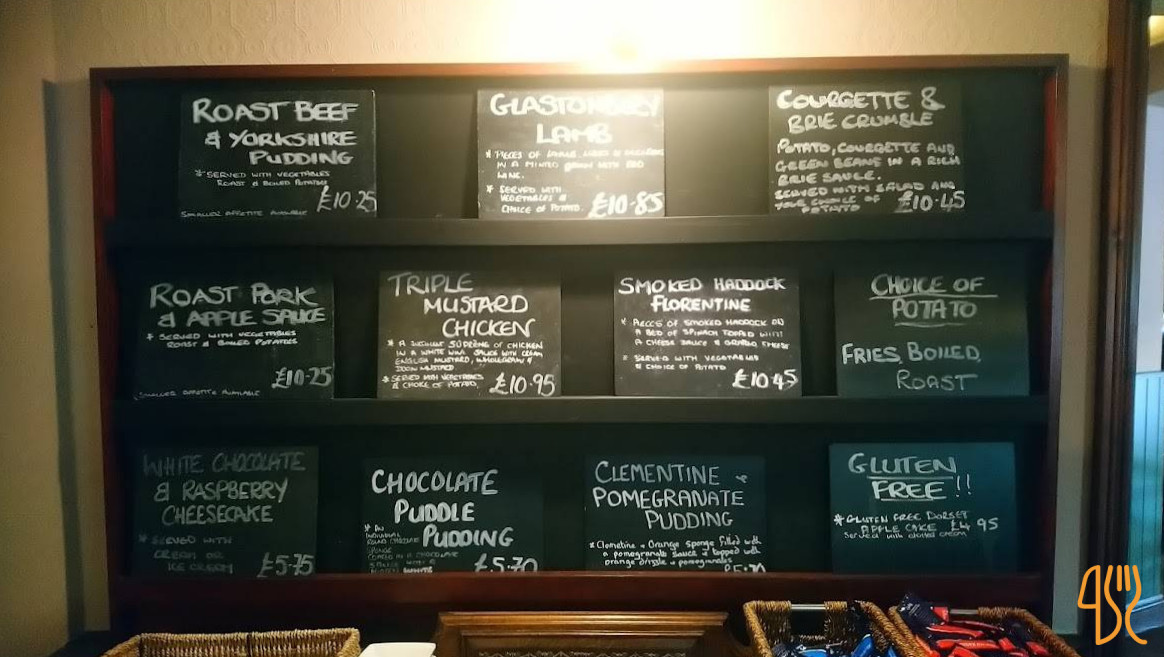 ROAST BEEF
& YORKSHIRE
PUDDING
* SERVED WITH VEGETABLES
ROAST & BOILED POTATOES
£10.25
SMALLER APPETITE AVAILABLE
GLASTONBURY
LAMB
* PIECES OF
IN A MINTED GRAVY WITH RED
WINE.
* SERVED WITH
VEGETABLES &
CHOICE OF POTATO.
£10.85
COURGETTE &
BRIE CRUMBLE
POTATO, COURGETTE AND
GREEN BEANS IN A RICH
BRIE SAUCE.
SERVED WITH SALAD AND
YOUR CHOICE OF
POTATO
£10.45
ROAST PORK
& APPLE SAUCE
* SERVED WITH VEGETABLES
ROAST & BOILED POTATOES
£10.25
SMALLER APPETITE AVAILABLE
TRIPLE
MUSTARD
CHICKEN
* A SUCCULENT SUPREME OF CHICKEN
IN A WHITE WINE SAUCE WITH CREAM
ENGLISH MUSTARD, WHOLEGRAIN &
DIJON MUSTARD
* SERVED WITH VEGETABLES
& CHOICE OF POTATO.
£10.95
SMOKED HADDOCK
FLORENTINE
* PIECES OF SMOKED HADDOCK ON
A BED OF SPINACH TOPPED WITH
A CHEESE SAUCE & GRATED CHEESE
* SERVED WITH VEGETABLES
& CHOICE OF POTATO
£10.45
CHOICE OF
POTATO
FRIES, BOILED,
ROAST
WHITE CHOCOLATE
& RASPBERRY
CHEESECAKE
* SERVED WITH
CREAM OR
ICE CREAM
£5.75
CHOCOLATE
PUDDLE
PUDDING
* AN
INDIVIDUAL
SPONGE
COATED IN A CHOCOLATE
WHITE
£5.70
CLEMENTINE &
POMEGRANATE
PUDDING
* Clementine & Orange sponge filled with
a pomegranate sauce & topped with
orange drizzle & pomegranates
GLUTEN
FREE!!
* GLUTEN FREE DORSET
APPLE CAKE £4.95
Served with clotted cream